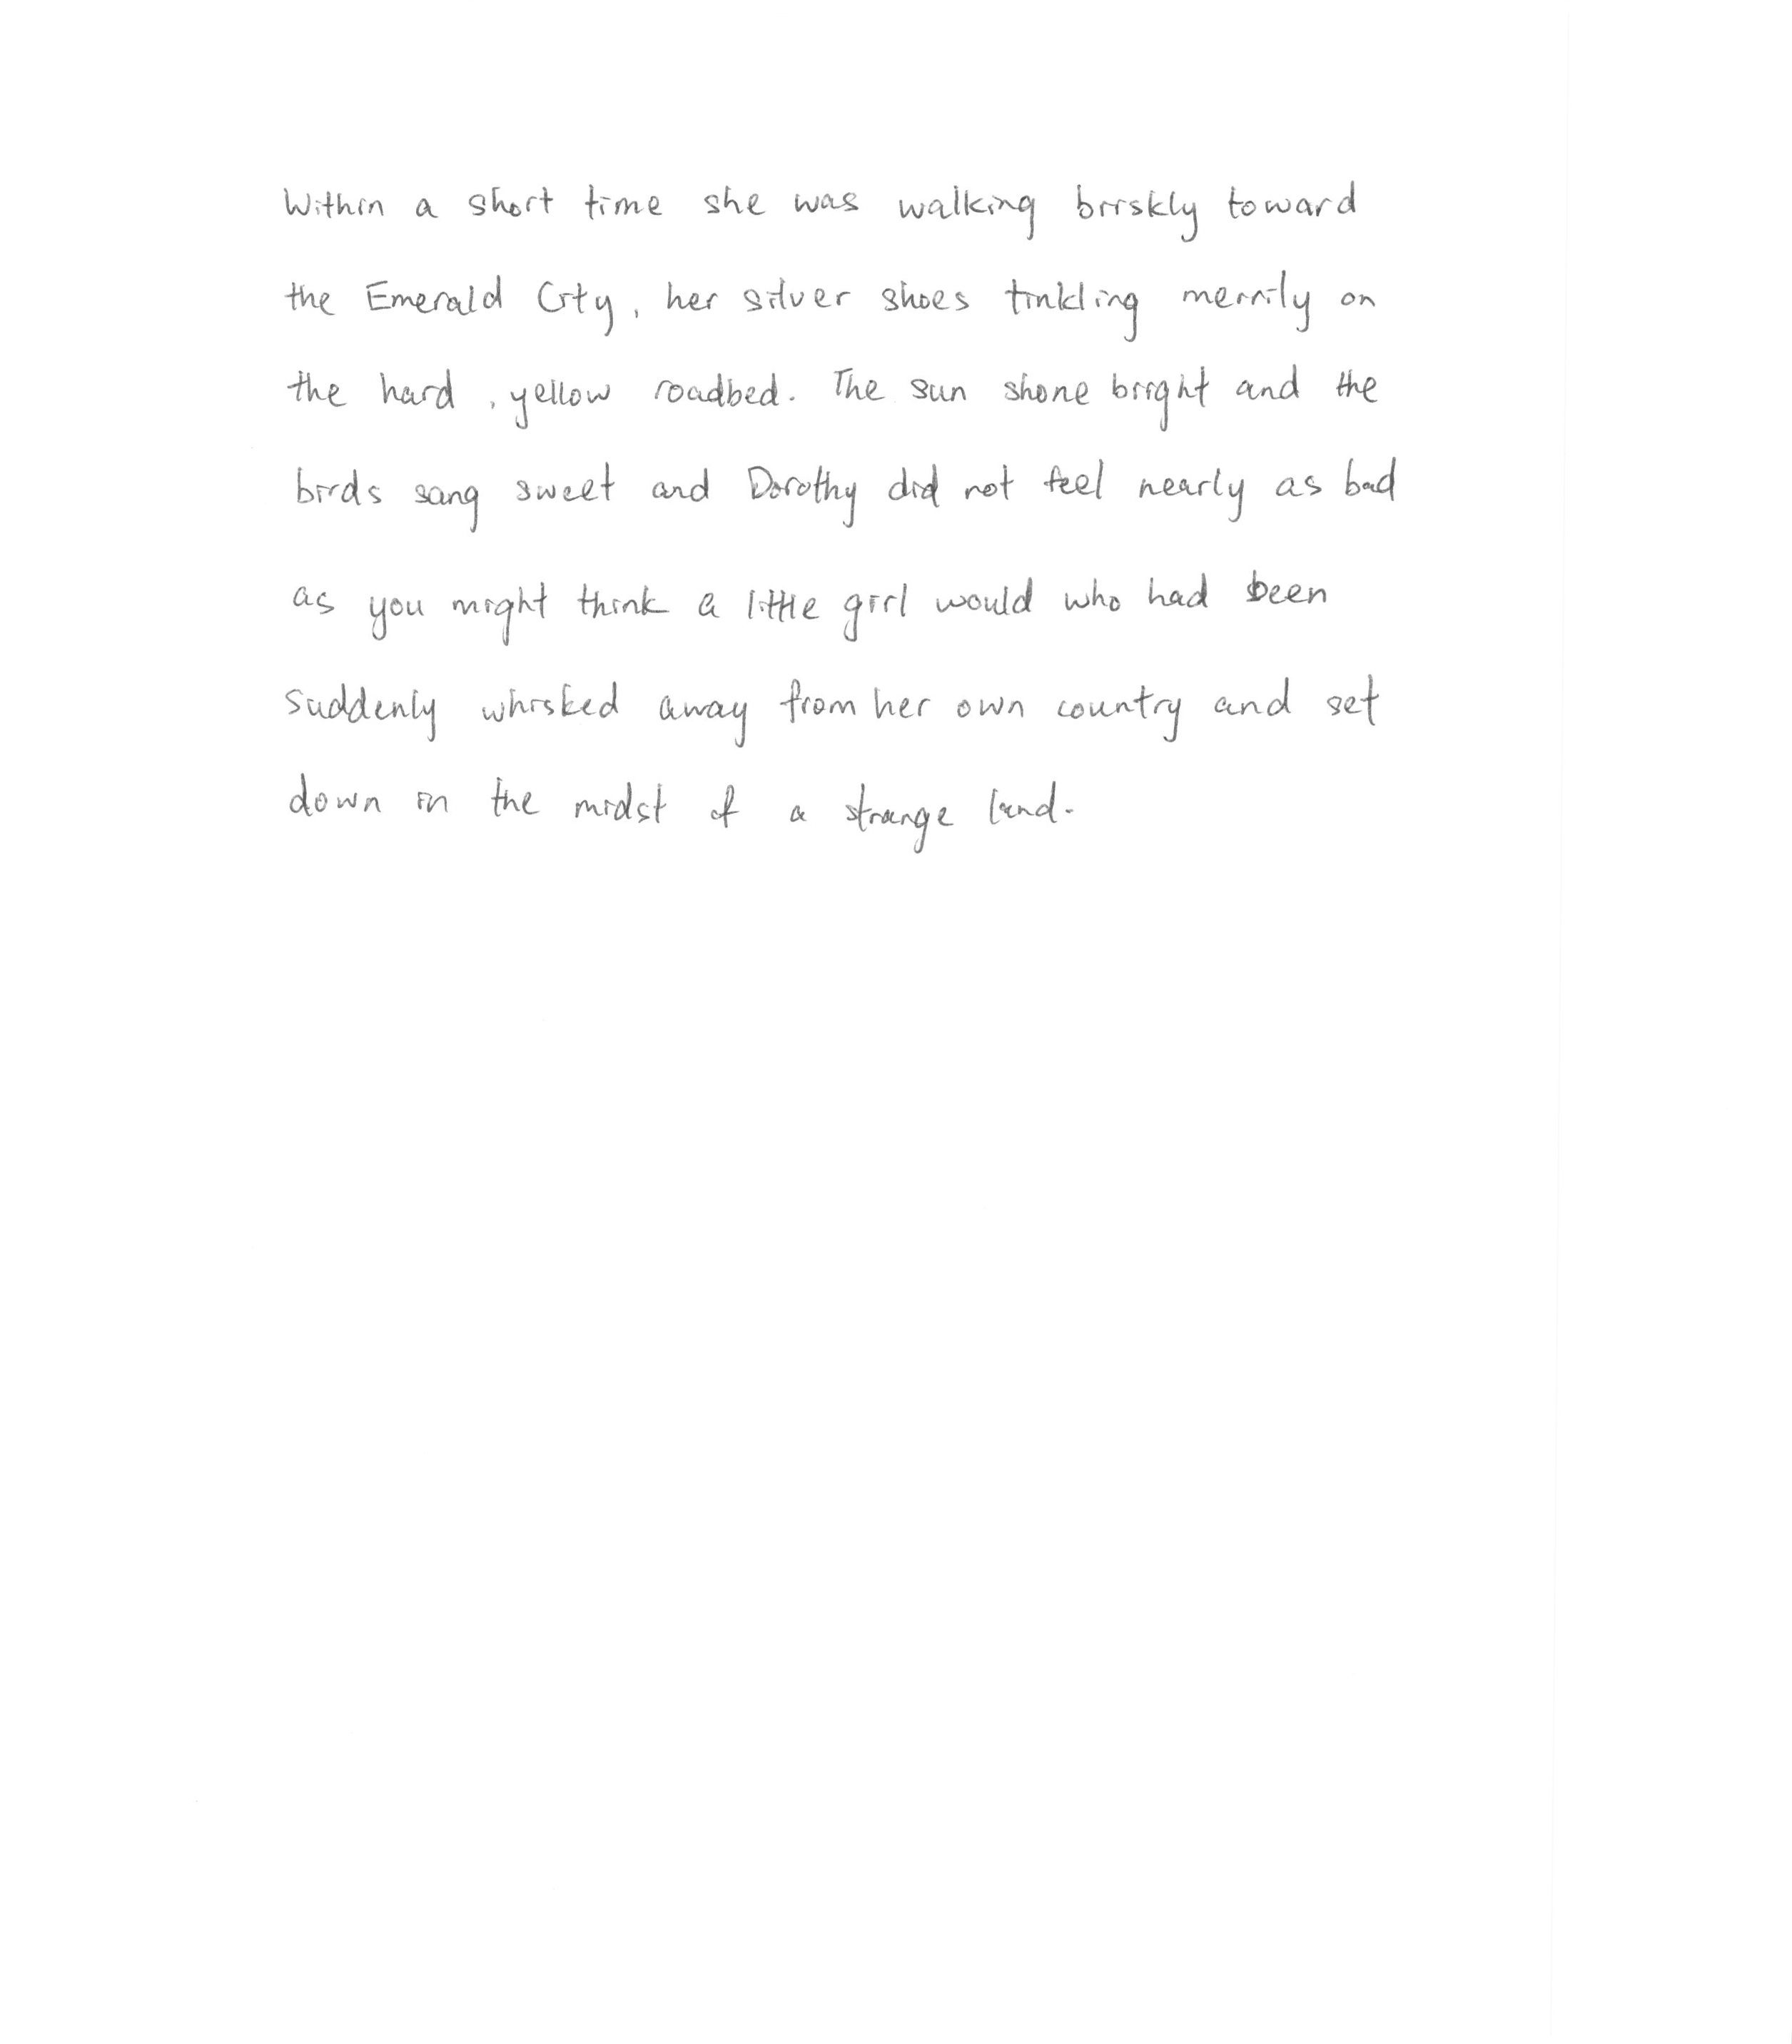 Within a short time she was walking briskly toward
the Emerald City, her silver shoes tinkling merrily on
the hard, yellow roadbed. The sun shone bright and the
birds sang sweet and Dorothy did not feel nearly as bad
as you might think a little girl would who had been
suddenly whisked away from her own country and set
down in the midst of a strange land.